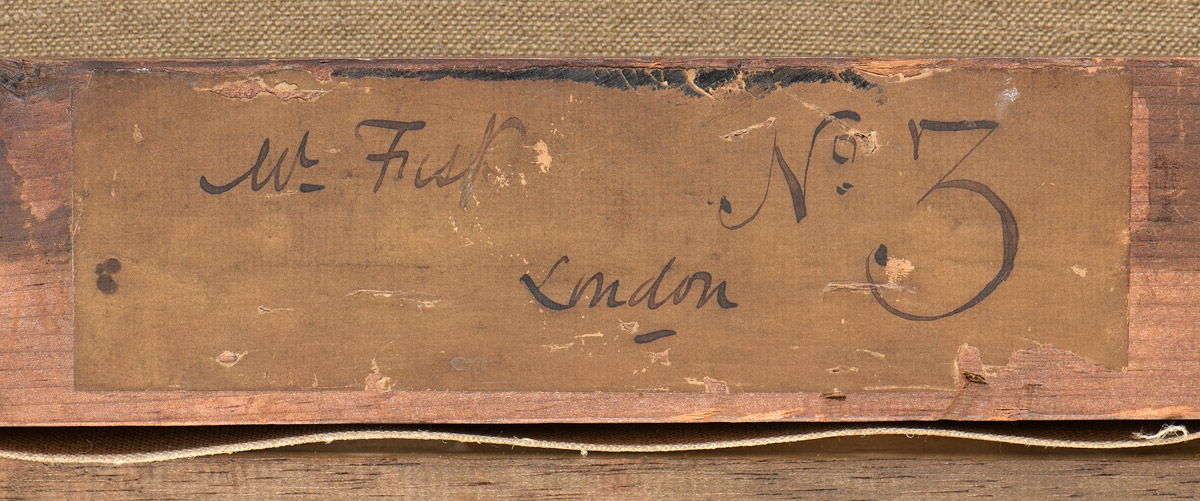 Mr. Fisk No. 3
London